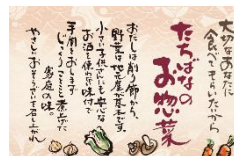 大切なあなたに
食べてもらいたいから
たちばなの
お惣菜
おだしは削り節から、
野菜は地元産が基本です。
小さい子供さんにも安心な
お酒を使わない味付で
手間をおします
じっくりことこと煮上げた
家庭の味。
やさしいおそうざいを召し上がれ